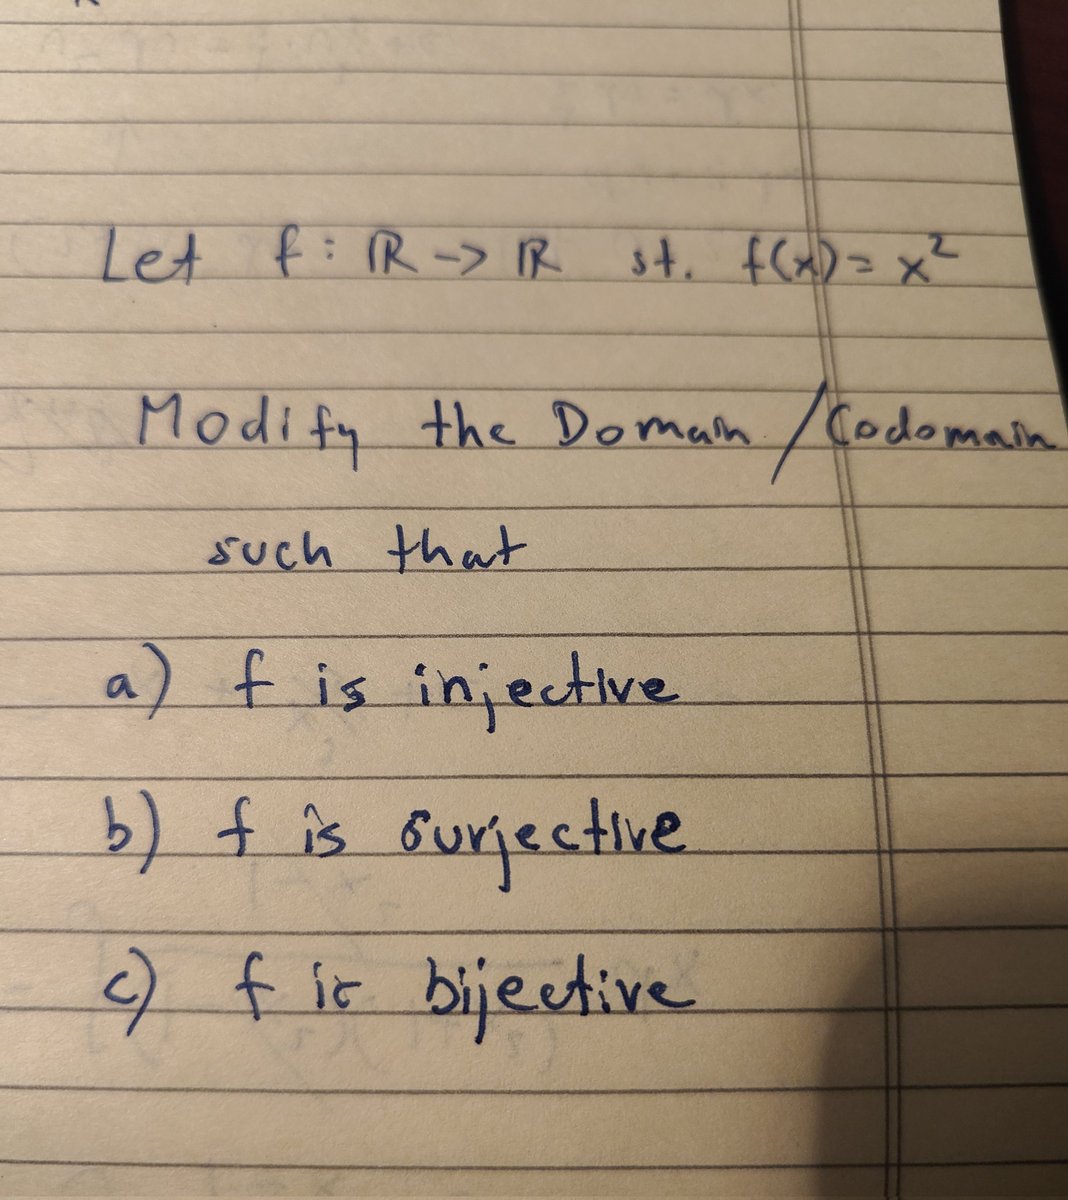 Let f: ℝ -> ℝ st. f(x) = x²
Modify the Domain / Codomain
such that
a) f is injective
b) f is surjective
c) f is bijective